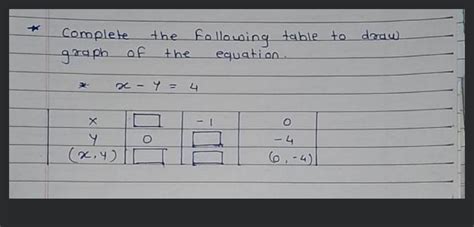 * Complete the following table to draw
graph of the equation.
* x - y = 4
x □ -1 0
y 0 □ -4
(x, y) □ □ (0, -4)